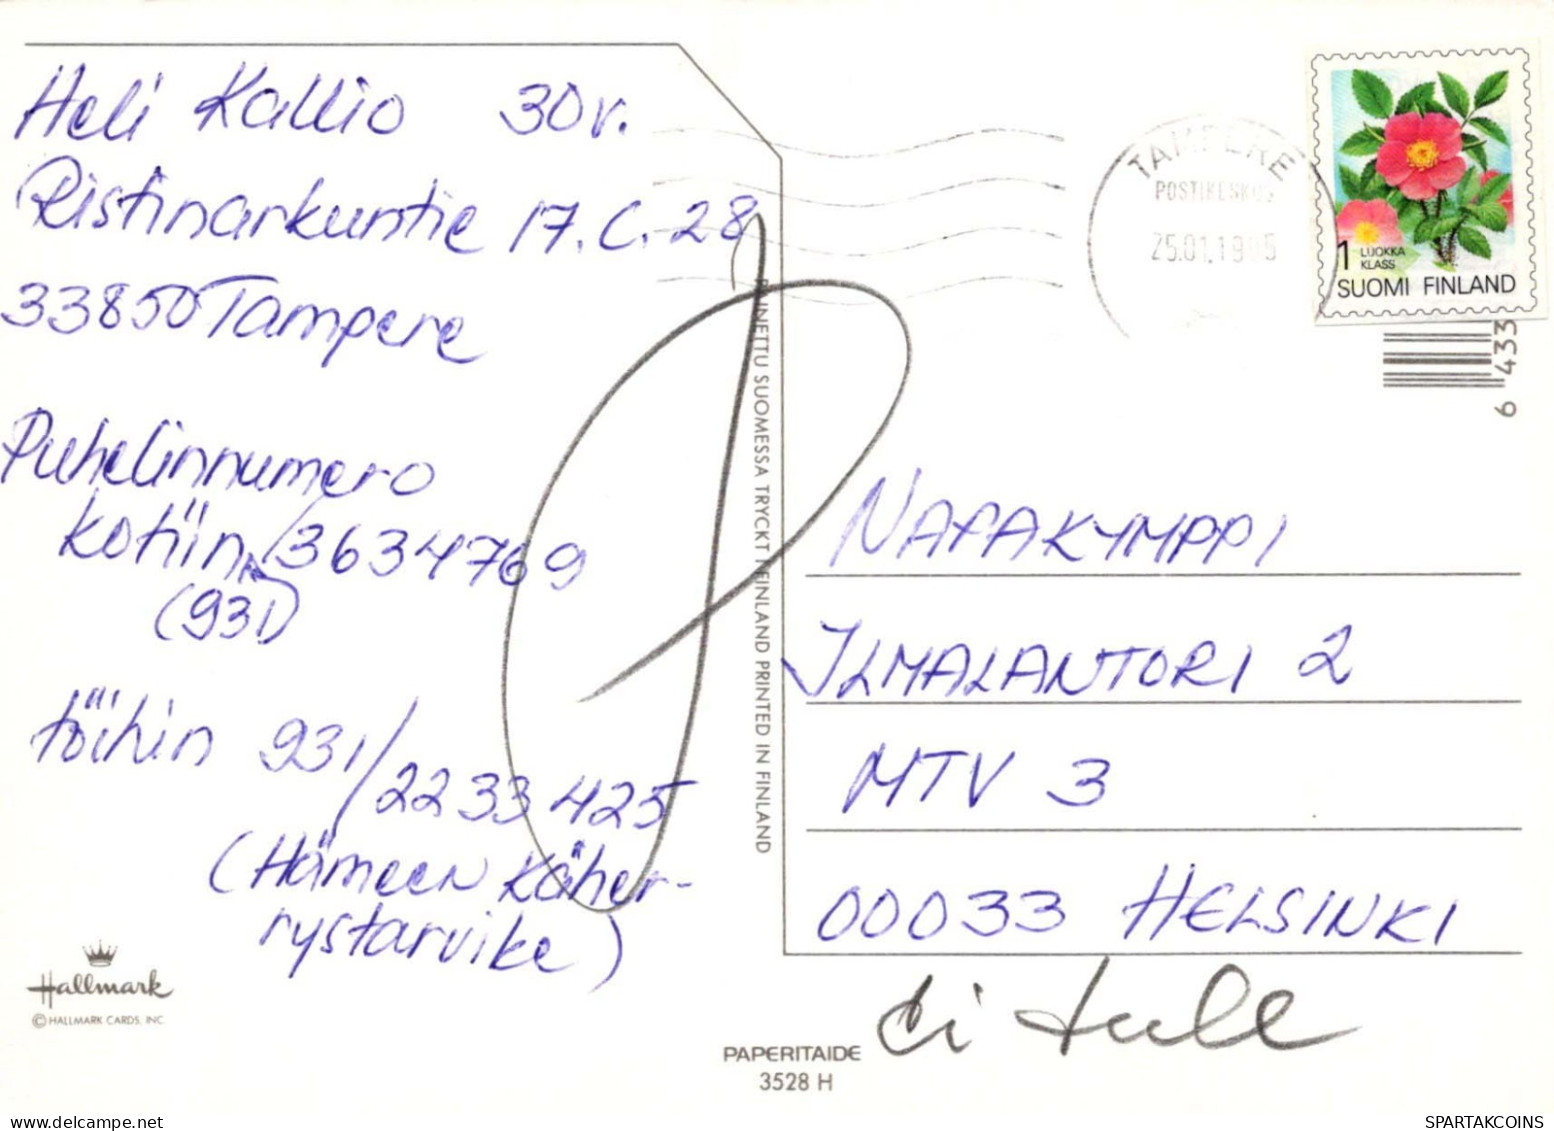 Heli Kallio 30v.
Ristinarkuntie 17.C.28
33850 Tampere
Puhelinnumero
kotiin /3634769
(931)
töihin 931/2233425
(Hämeen Käher-
rystarvike)
Hallmark
© HALLMARK CARDS, INC.
PAINETTU SUOMESSA TRYCKT I FINLAND PRINTED IN FINLAND
PAPERITAIDE
3528 H
TAMPERE
POSTIKESKUS
25.01.1995
1 LUOKKA
KLASS
SUOMI FINLAND
6 433
NAFAKYMPPI
ILMALANTORI 2
MTV 3
00033 HELSINKI
ei tule
SPARTAKCOINS